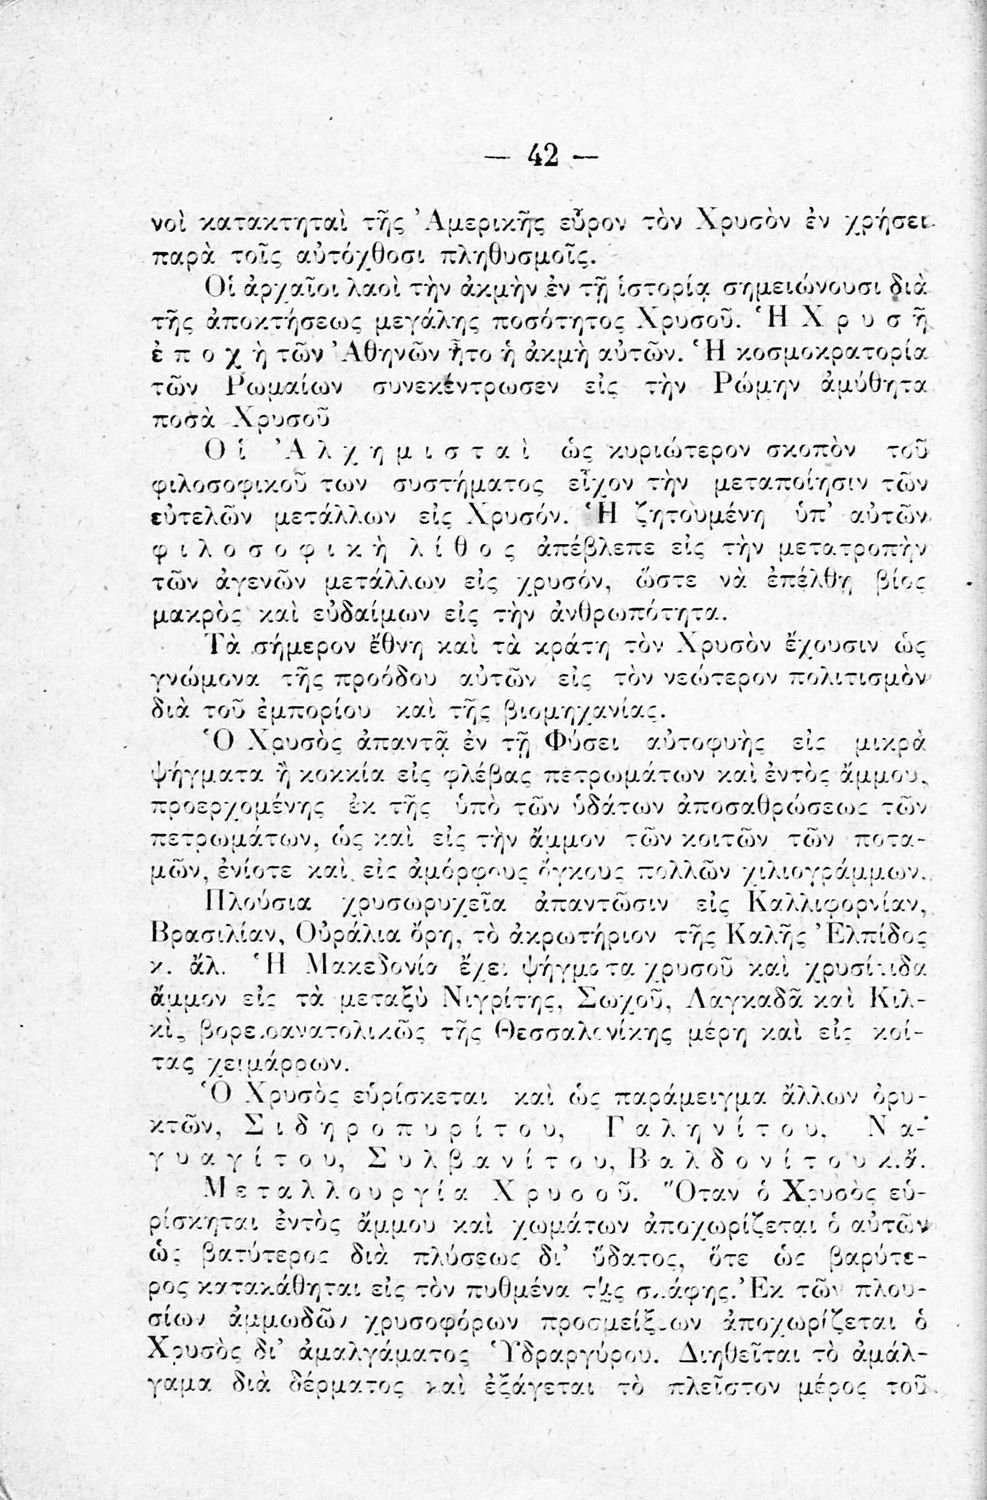 — 42 —
νοὶ κατακτηταὶ τῆς Ἀμερικῆς εὗρον τὸν Χρυσὸν ἐν χρήσει
παρὰ τοῖς αὐτόχθοσι πληθυσμοῖς.
Οἱ ἀρχαῖοι λαοὶ τὴν ἀκμὴν ἐν τῇ ἱστορίᾳ σημειώνουσι διὰ
τῆς ἀποκτήσεως μεγάλης ποσότητος Χρυσοῦ. Ἡ Χ ρ υ σ ῆ
ἐ π ο χ ὴ τῶν Ἀθηνῶν ἦτο ἡ ἀκμὴ αὐτῶν. Ἡ κοσμοκρατορία
τῶν Ρωμαίων συνεκέντρωσεν εἰς τὴν Ρώμην ἀμύθητα
ποσὰ Χρυσοῦ
Ο ἱ Ἀ λ χ η μ ι σ τ α ὶ ὡς κυριώτερον σκοπὸν τοῦ
φιλοσοφικοῦ των συστήματος εἶχον τὴν μεταποίησιν τῶν
εὐτελῶν μετάλλων εἰς Χρυσόν. Ἡ ζητουμένη ὑπ’ αὐτῶν
φ ι λ ο σ ο φ ι κ ὴ λ ί θ ο ς ἀπέβλεπε εἰς τὴν μετατροπὴν
τῶν ἀγενῶν μετάλλων εἰς χρυσόν, ὥστε νὰ ἐπέλθῃ βίος
μακρὸς καὶ εὐδαίμων εἰς τὴν ἀνθρωπότητα.
Τὰ σήμερον ἔθνη καὶ τὰ κράτη τὸν Χρυσὸν ἔχουσιν ὡς
γνώμονα τῆς προόδου αὐτῶν εἰς τὸν νεώτερον πολιτισμὸν
διὰ τοῦ ἐμπορίου καὶ τῆς βιομηχανίας.
Ὁ Χρυσὸς ἀπαντᾷ ἐν τῇ Φύσει αὐτοφυὴς εἰς μικρὰ
ψήγματα ἢ κοκκία εἰς φλέβας πετρωμάτων καὶ ἐντὸς ἄμμου,
προερχομένης ἐκ τῆς ὑπὸ τῶν ὑδάτων ἀποσαθρώσεως τῶν
πετρωμάτων, ὡς καὶ εἰς τὴν ἄμμον τῶν κοιτῶν τῶν ποτα-
μῶν, ἐνίοτε καὶ εἰς ἀμόρφους ὄγκους πολλῶν χιλιογράμμων.
Πλούσια χρυσωρυχεῖα ἀπαντῶσιν εἰς Καλλιφορνίαν,
Βρασιλίαν, Οὐράλια ὄρη, τὸ ἀκρωτήριον τῆς Καλῆς Ἐλπίδος
κ. ἄλ. Ἡ Μακεδονία ἔχει ψήγματα χρυσοῦ καὶ χρυσίτιδα
ἄμμον εἰς τὰ μεταξὺ Νιγρίτης, Σωχοῦ, Λαγκαδᾶ καὶ Κιλ-
κὶς βορειοανατολικῶς τῆς Θεσσαλονίκης μέρη καὶ εἰς κοί-
τας χειμάρρων.
Ὁ Χρυσὸς εὑρίσκεται καὶ ὡς παράμειγμα ἄλλων ὀρυ-
κτῶν, Σ ι δ η ρ ο π υ ρ ί τ ο υ, Γ α λ η ν ί τ ο υ, Ν α-
γ υ α γ ί τ ο υ, Σ υ λ β α ν ί τ ο υ, Β α λ δ ο ν ί τ ο υ κ.ἄ.
Μ ε τ α λ λ ο υ ρ γ ί α Χ ρ υ σ ο ῦ. Ὅταν ὁ Χρυσὸς εὑ-
ρίσκηται ἐντὸς ἄμμου καὶ χωμάτων ἀποχωρίζεται ὁ αὐτῶν
ὡς βατύτερος διὰ πλύσεως δι’ ὕδατος, ὅτε ὡς βαρύτε-
ρος κατακάθηται εἰς τὸν πυθμένα τῆς σκάφης. Ἐκ τῶν πλου-
σίων ἀμμωδῶν χρυσοφόρων προσμείξεων ἀποχωρίζεται ὁ
Χρυσὸς δι’ ἀμαλγάματος Ὑδραργύρου. Διηθεῖται τὸ ἀμάλ-
γαμα διὰ δέρματος καὶ ἐξάγεται τὸ πλεῖστον μέρος τοῦ